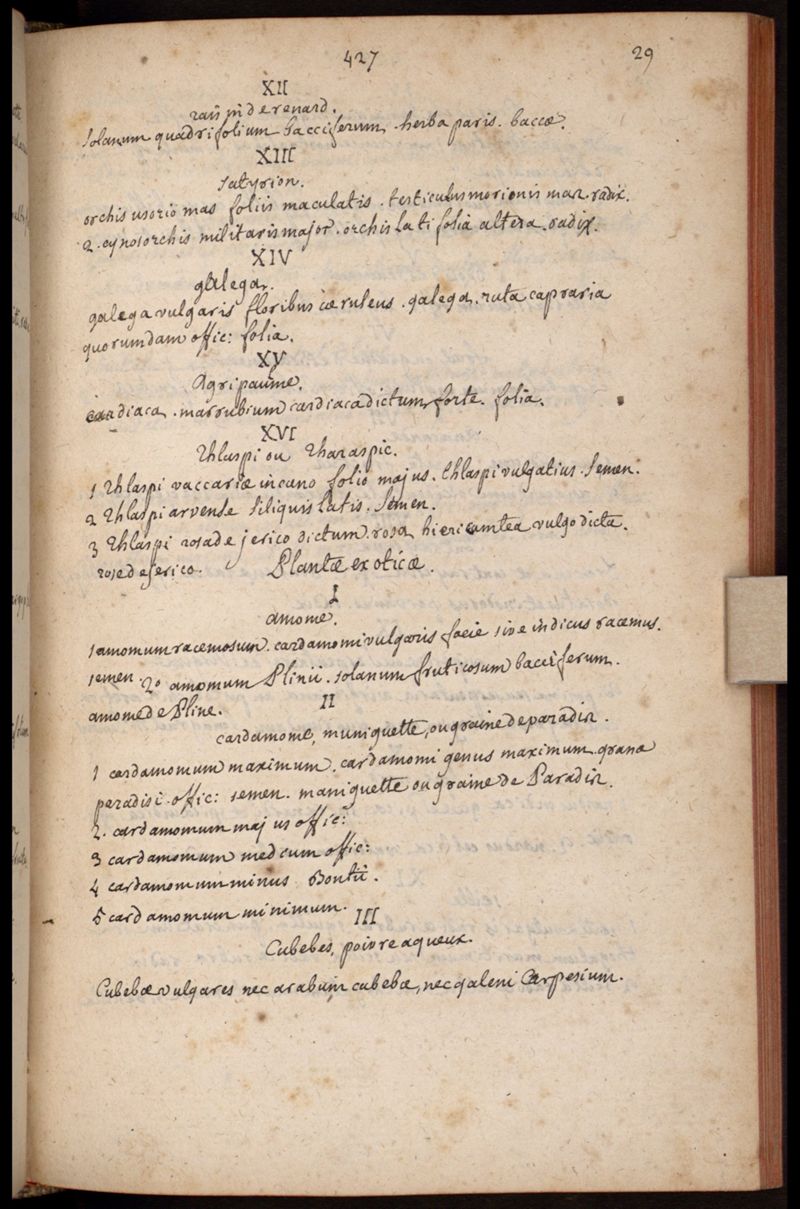 427
29
XII
raisin de renard.
solanum quadrifolium bacciferum. herba paris. baccæ.
XIII
satyrion.
orchis morio mas foliis maculatis. testiculus morionis mar. radix.
2. cynosorchis militaris major. orchis latifolia altera. radix.
XIV
galega.
galega vulgaris floribus cæruleus. galega. ruta capraria
quorumdam offic: folia.
XV
Agripaume.
cardiaca. marrubium cardiaca dictum, forte. folia.
XVI
thlaspi ou tharaspic.
1 thlaspi vaccariæ incano folio majus. thlaspi vulgatius. semen.
2 thlaspi arvense siliquis latis. semen.
3 thlaspi rosa de jerico dictum. rosa hiericuntea vulgo dicta.
rose de jerico.
Plantæ exoticæ.
I
amome.
1 amomum racemosum. cardamomi vulgaris facie sive indicus racemus.
semen. 2º amomum Plinii. solanum fruticosum bacciferum.
amome de Pline.
II
cardamome, muniguette, ou graine de paradis.
1 cardamomum maximum. cardamomi genus maximum. grana
paradisi. offic: semen. maniguette ou graine de Paradis.
2. cardamomum majus offic:
3 cardamomum medcum offic:
4 cardamomum minus Bontii.
5 cardamomum minimum.
III
Cubebes, poivre a queux.
Cubebæ vulgares nec arabum cubebæ, nec galeni Carpesium.